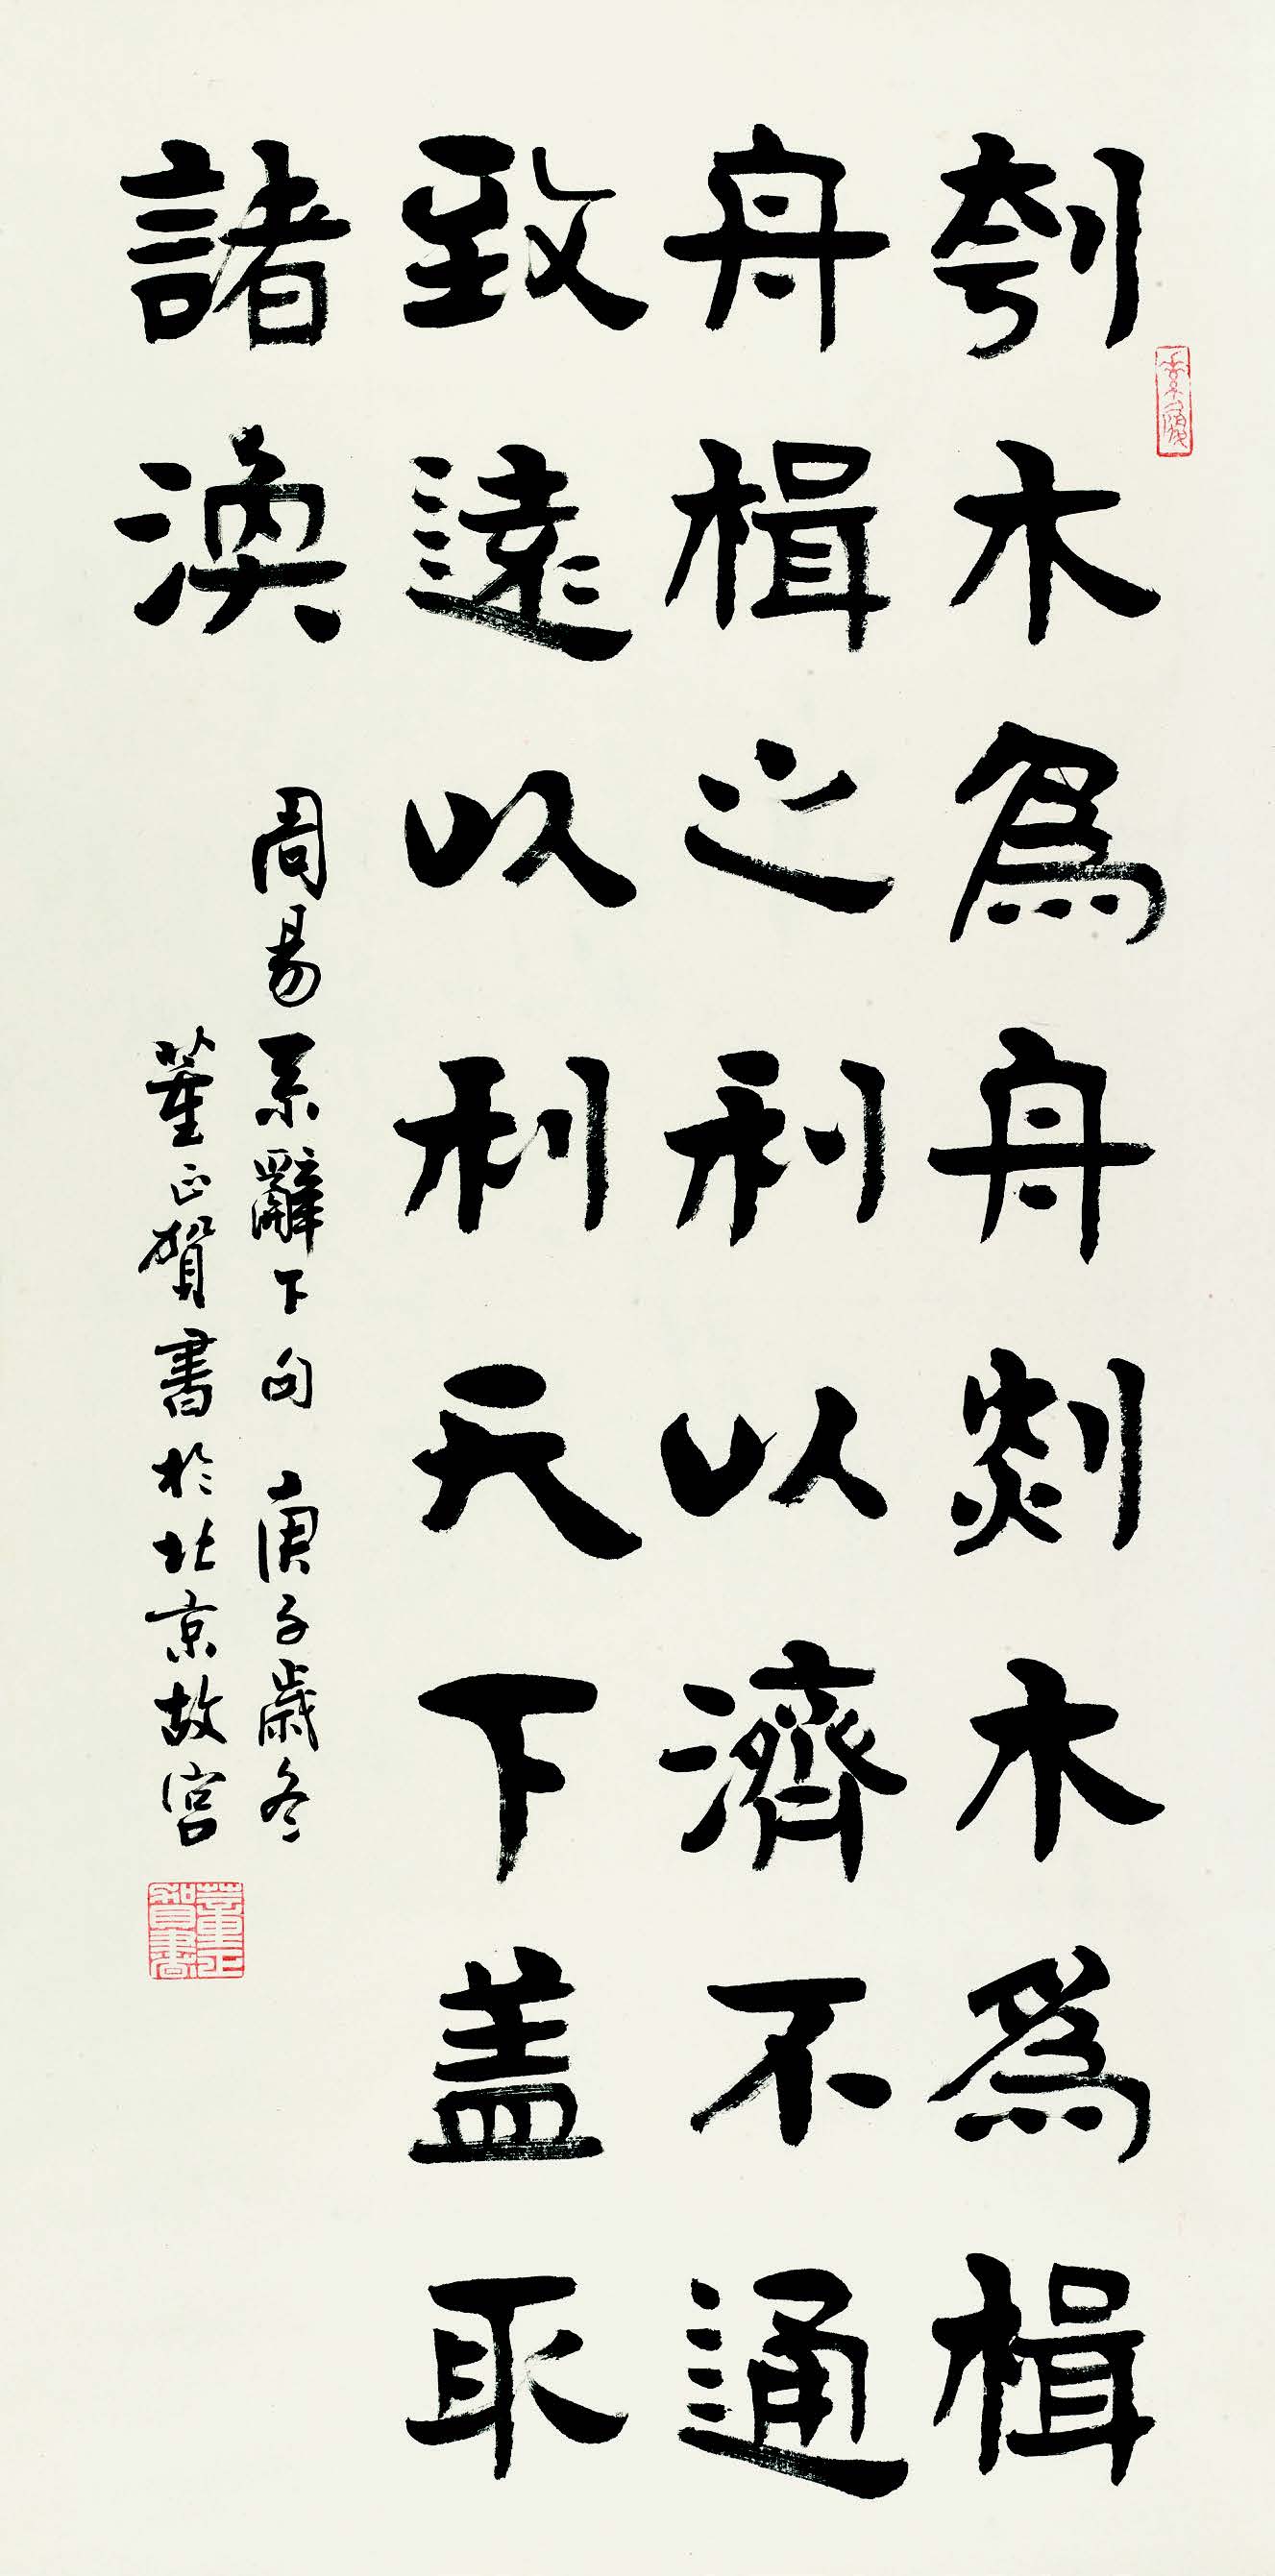 刳木爲舟剡木爲楫
舟楫之利以濟不通
致遠以利天下盖取
諸渙
周易系辭下句 庚子歲冬
董正賀書於北京故宮
董正賀書